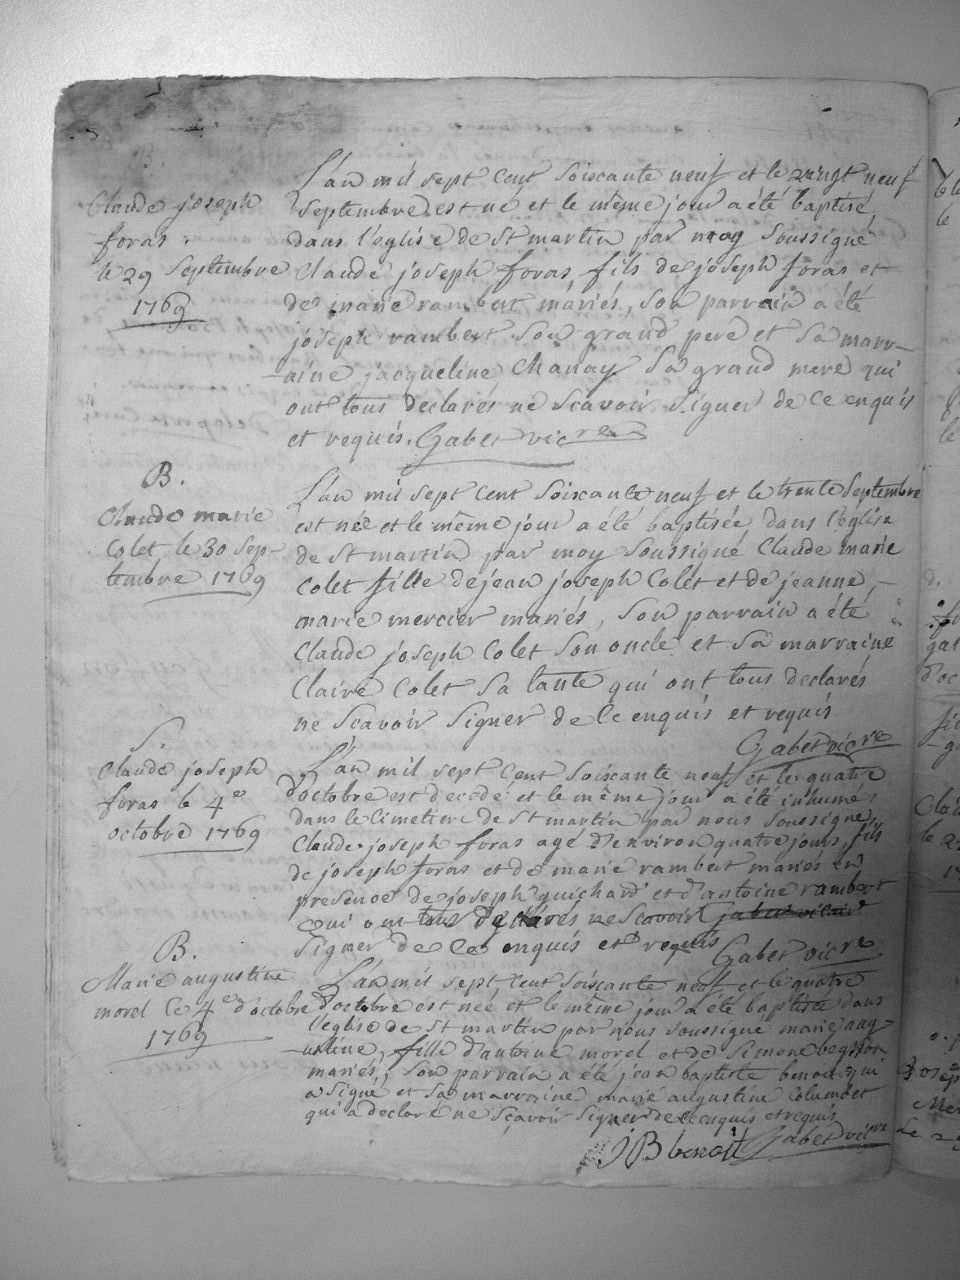 B.
Claude joseph
foras.
le 29 Septembre
1769
L'an mil sept Cent Soiscante neuf et le vingt neuf
Septembre est né et le même jour a été baptisé
dans l'eglise de St martin par moy Soussigné
Claude joseph foras fils de joseph foras et
de marie rambert mariés, Son parrain a été
joseph rambert Son grand pere et Sa marr-
-aine jacqueline Chanay Sa grand mere qui
ont tous declarés ne Scavoir Signer de Ce enquis
et requis. Gabet vicre
B.
Claude marie
Colet le 30 Sep-
tembre 1769
L'an mil sept Cent Soiscante neuf et le trente Septembre
est née et le même jour a été baptisée dans l'eglise
de St martin par moy Soussigné Claude marie
Colet fille de jean joseph Colet et de jeanne
marie mercier mariés, Son parrain a été
Claude joseph Colet Son oncle et Sa marraine
Claire Colet Sa tante qui ont tous declarés
ne Scavoir Signer de Ce enquis et requis
Gabet vicre
S.
Claude joseph
foras le 4e
octobre 1769
L'an mil sept Cent Soiscante neuf et le quatre
d'octobre est decedé et le même jour a été inhumé
dans le Cimetiere de St martin par nous Soussigné
Claude joseph foras agé d'environ quatre jours fils
de joseph foras et de marie rambert mariés en
presence de joseph guichard et d'antoine rambert
qui ont tous declarés ne Scavoir Gabet vicaire
Signer de Ce enquis et requis
Gabet vicre
B.
Marie augustine
morel le 4e d'octobre
1769
L'an mil sept Cent Soiscante neuf et le quatre
d'octobre est née et le même jour a été baptisée dans
l'eglise de St martin par nous Soussigné marie aug-
-ustine, fille d'antoine morel et de Simone
mariés, Son parrain a été jean baptiste benoit qui
a Signé et Sa marraine marie augustine Columbet
qui a declaré ne Scavoir Signer de Ce enquis et requis
JB benoit Gabet vicre